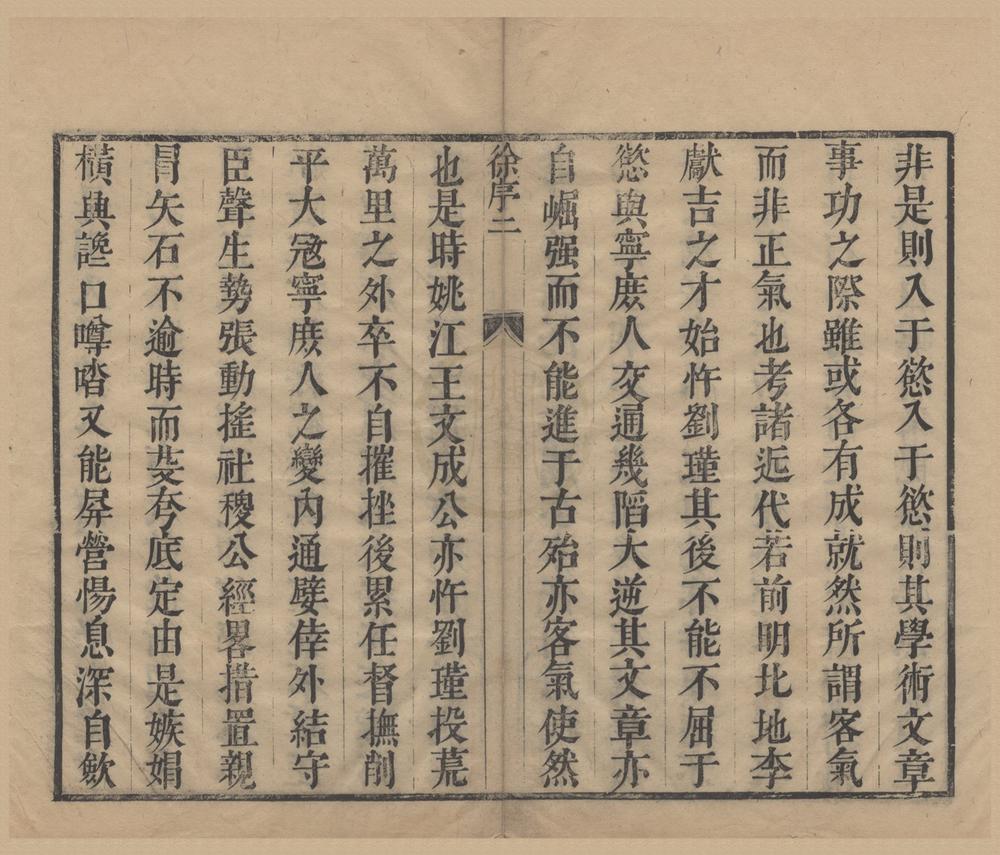 非是則入于慾入于慾則其學術文章
事功之際雖或各有成就然所謂客氣
而非正氣也考諸近代若前明北地李
獻吉之才始忤劉瑾其後不能不屈于
慾與寧庻人交通幾陷大逆其文章亦
自崛强而不能進于古殆亦客氣使然
徐序二
也是時姚江王文成公亦忤劉瑾投荒
萬里之外卒不自摧挫後累任督撫削
平大寇寧庻人之變內通嬖倖外結守
臣聲生勢張動搖社稷公經畧措置親
冒矢石不逾時而芟夸底定由是嫉娟
橫興讒口噂喒又能屏營惕息深自歛